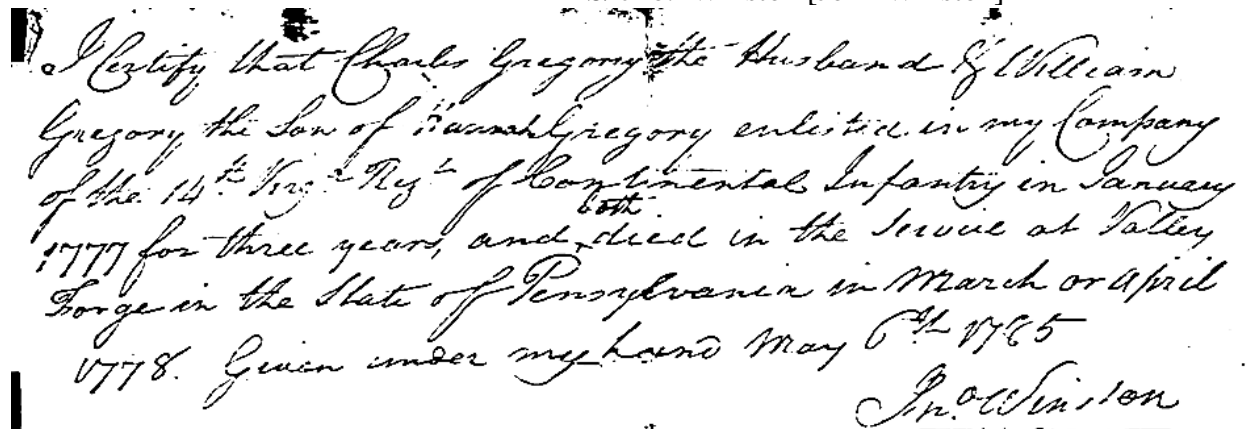 I Certify that Charles Gregory the Husband & William
Gregory the Son of Hannah Gregory enlisted in my Company
of the 14th Virga Regt of Continental Infantry in January
1777 for three years, and both died in the Service at Valley
Forge in the State of Pensylvania in March or April
1778. Given under my hand May 6th 1785
Jno Winston